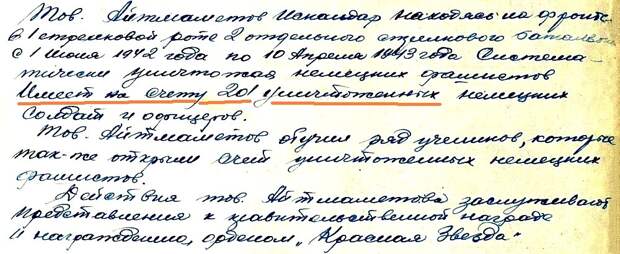 Тов. Айтмаметов Искандар находясь на фронте
в 1 стрелковой роте 2 отдельного стрелкового баталиона
с 1 Июня 1942 года по 10 Апреля 1943 года Система-
тически уничтожая немецких фашистов
Имеет на счету 201 уничтоженных немецких
солдат и офицеров.
Тов. Айтмаметов обучил ряд учеников, которые
так-же открыли счет уничтоженных немецких
фашистов.
Действия тов. Айтмаметова заслуживают
представления к правительственной награде
и награждению, орденом „Красная Звезда"